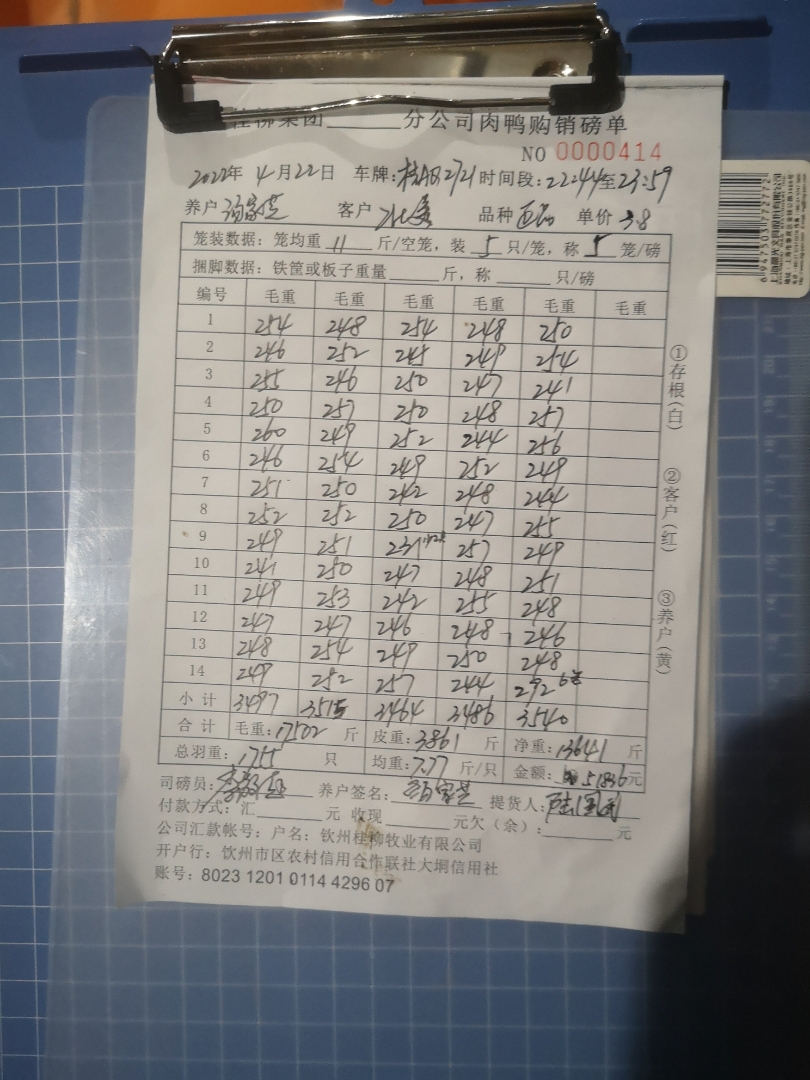 桂柳集团______分公司肉鸭购销磅单
NO 0000414
2022年 4月22日 车牌: 2721 时间段: 22:44至23:59
养户 客户 品种 单价 3.8
笼装数据: 笼均重 11 斤/空笼, 装 5 只/笼, 称 5 笼/磅
捆脚数据: 铁筐或板子重量____斤, 称____只/磅
编号 毛重 毛重 毛重 毛重 毛重 毛重
1 254 248 254 248 250
2 246 252 245 249 254
3 255 246 250 247 241
4 250 257 250 248 257
5 260 249 252 244 256
6 246 254 249 252 249
7 251 250 242 248 244
8 252 252 250 247 255
9 249 251 231 257 249
10 241 250 247 248 251
11 249 253 242 255 248
12 247 247 246 248 246
13 248 254 249 250 248
14 249 252 257 244 292
小计 3497 3515 3464 3486 3540
合计 毛重: 17502 斤 皮重: 3861 斤 净重: 13641 斤
总羽重: 1755 只 均重: 7.77 斤/只 金额: 51836元
司磅员: 养户签名: 提货人:
付款方式: 汇______元 收现______元欠(余):______元
公司汇款帐号: 户名: 钦州桂柳牧业有限公司
开户行: 钦州市区农村信用合作联社大垌信用社
账号: 8023 1201 0114 4296 07
①存根(白)
②客户(红)
③养户(黄)
6947503772772